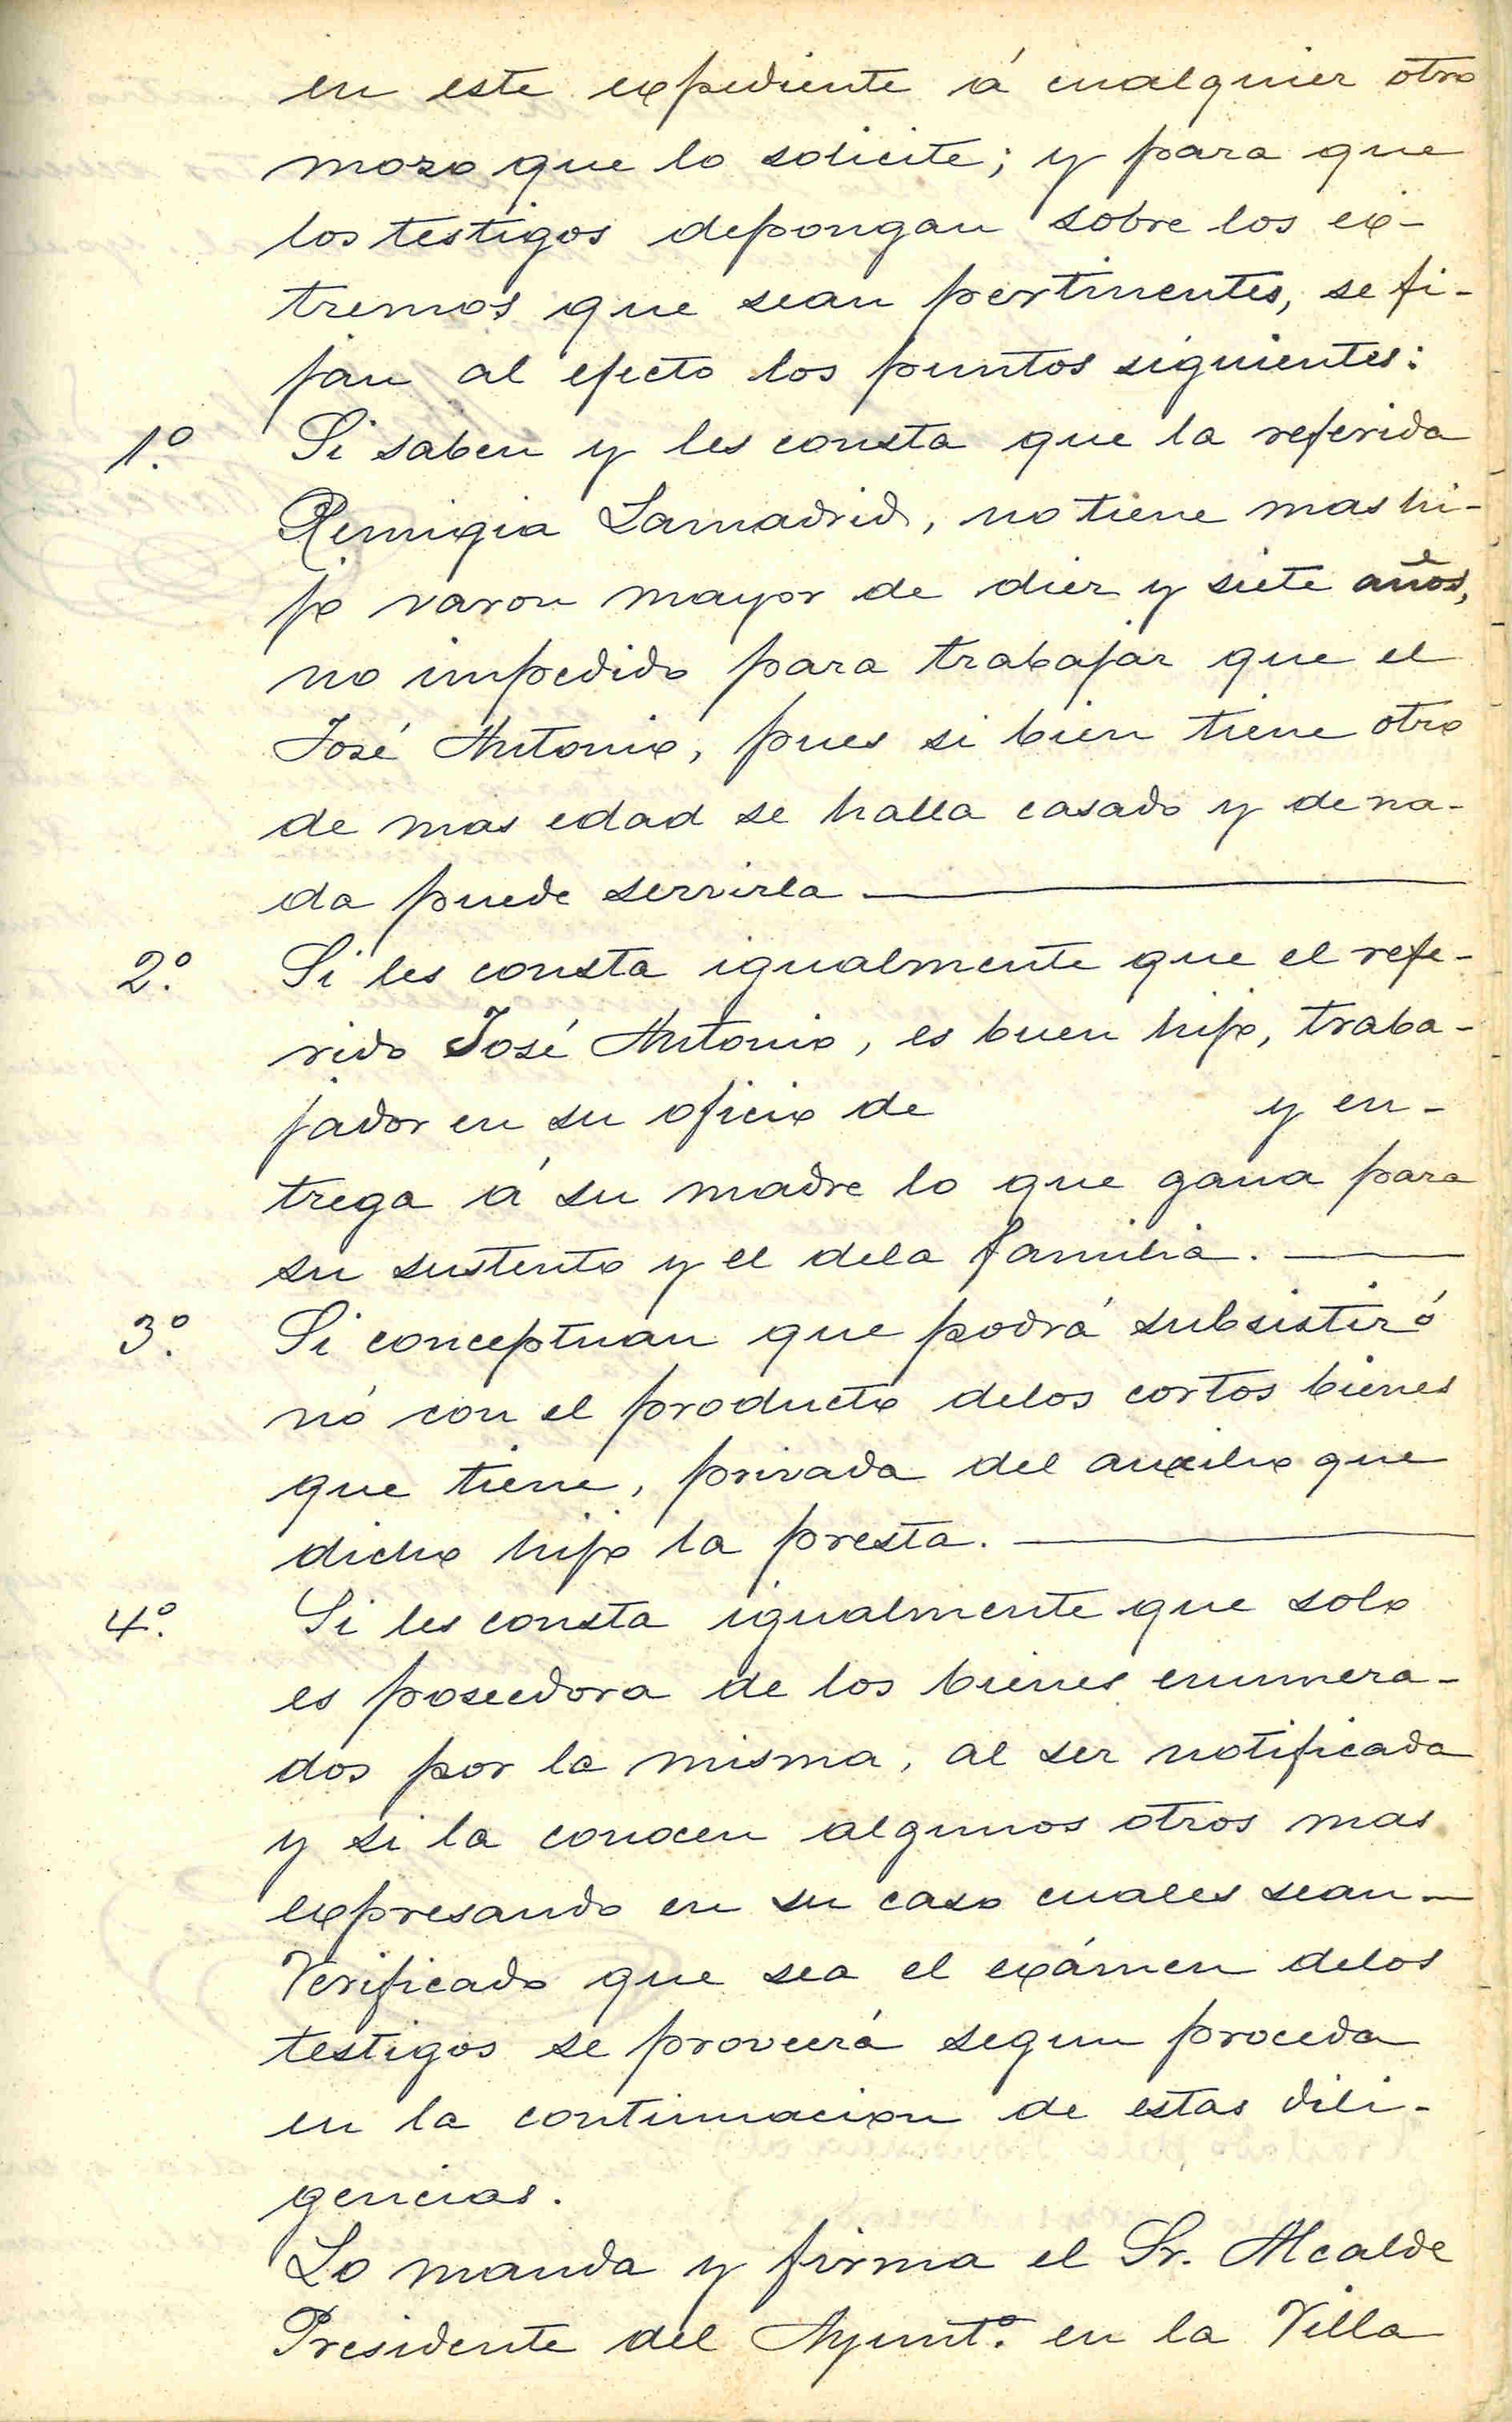 en este expediente á cualquier otro
mozo que lo solicite; y para que
los testigos depongan sobre los ex-
tremos que sean pertinentes, se fi-
jan al efecto los puntos siguientes:
1.º Si saben y les consta que la referida
Remigia Lamadrid, no tiene mas hi-
jo varon mayor de diez y siete años,
no impedido para trabajar que el
José Antonio, pues si bien tiene otro
de mas edad se halla casado y de na-
da puede servirla
2.º Si les consta igualmente que el refe-
rido José Antonio, es buen hijo, traba-
jador en su oficio de y en-
trega á su madre lo que gana para
su sustento y el dela familia.
3.º Si conceptuan que podrá subsistir ó
nó con el producto delos cortos bienes
que tiene, privada del auxilio que
dicho hijo la presta.
4.º Si les consta igualmente que solo
es poseedora de los bienes enumera-
dos por la misma, al ser notificada
y si la conocen algunos otros mas
expresando en su caso cuales sean
Verificado que sea el exámen delos
testigos se proveerá segun proceda
en la continuacion de estas dili-
gencias.
Lo manda y firma el Sr. Alcalde
Presidente del Ayunt.º en la Villa